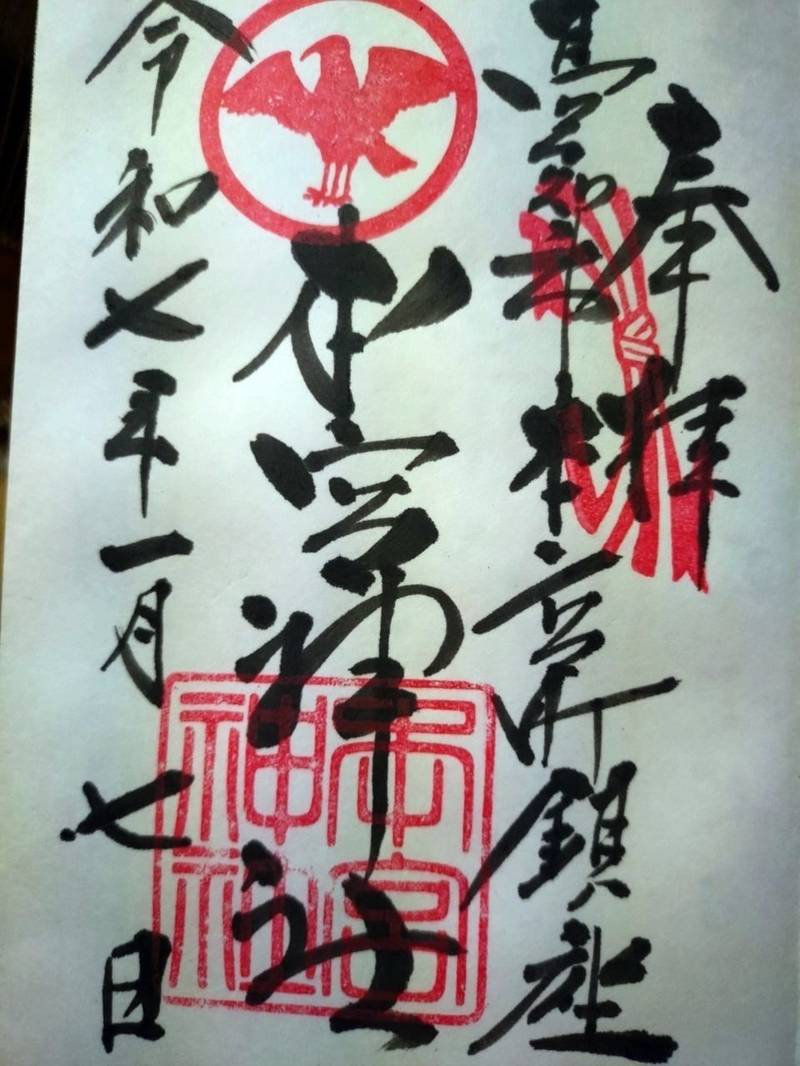 奉拝
高知市本宮町鎮座
本宮神社
本宮神社
令和七年一月七日